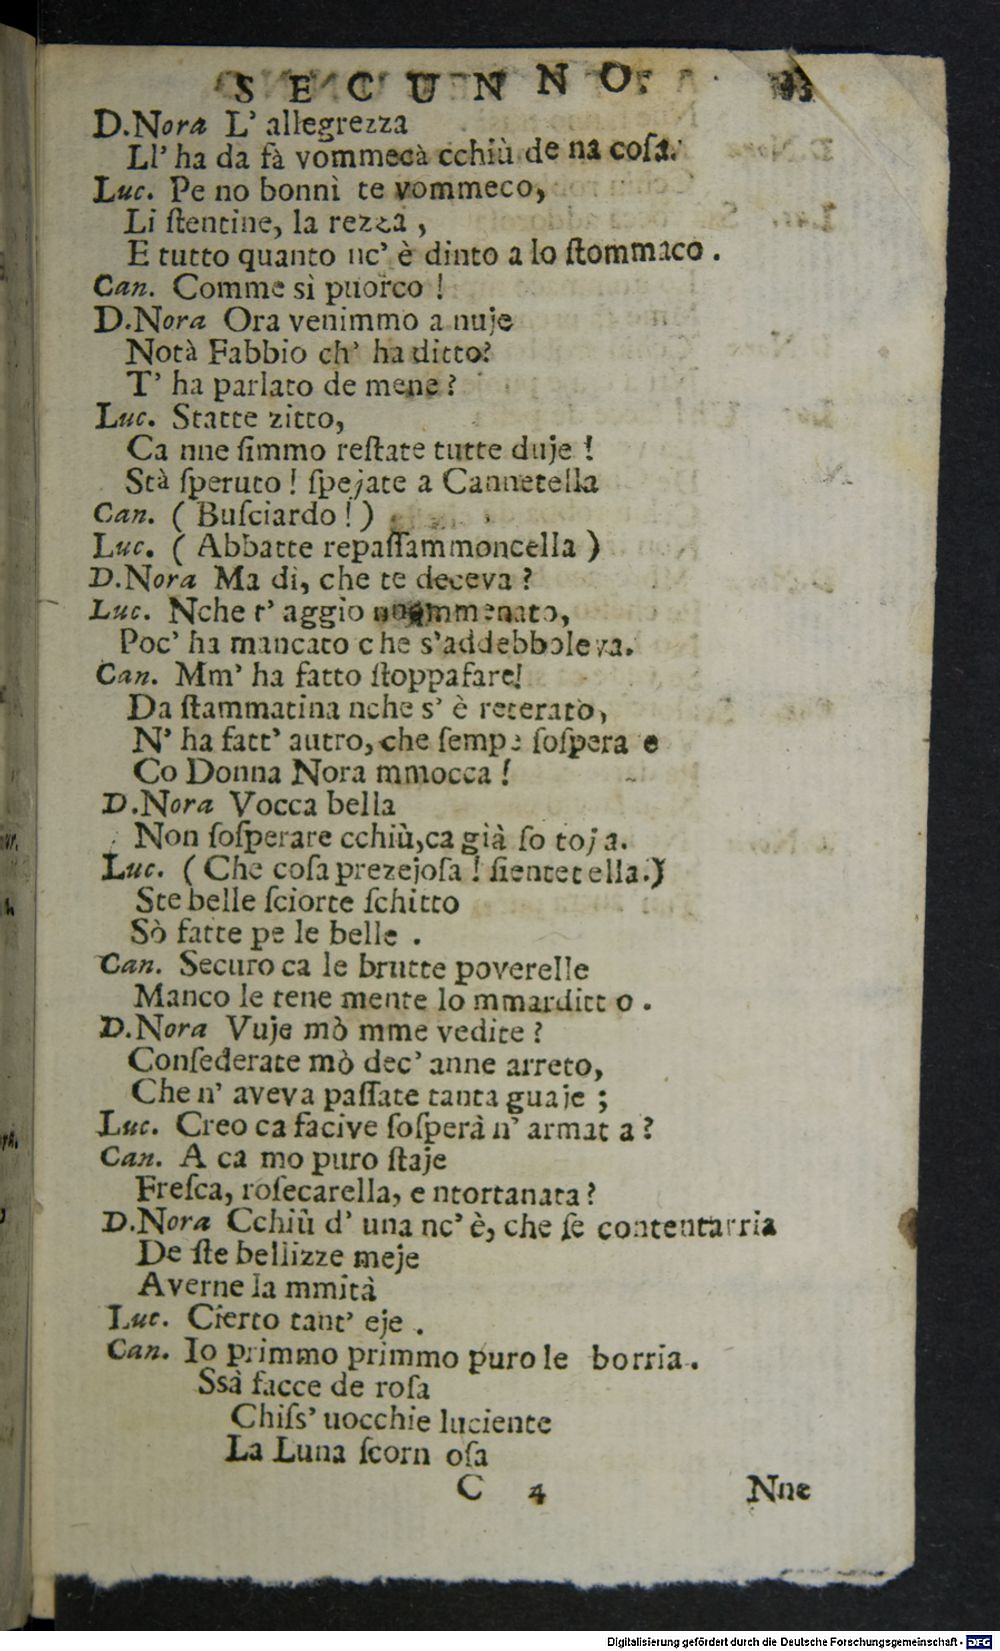 SECUNNO.
D.Nora L' allegrezza
Ll' ha da fà vommecà cchiù de na coſa.
Luc. Pe no bonnì te vommeco,
Li ſtentine, la rezza,
E tutto quanto nc' è dinto a lo ſtommaco.
Can. Comme sì puorco!
D.Nora Ora venimmo a nuje
Notà Fabbio ch' ha ditto?
T' ha parlato de mene?
Luc. Statte zitto,
Ca nne ſimmo reſtate tutte duje!
Stà ſperuto! ſpejate a Cannetella
Can. (Buſciardo!)
Luc. (Abbatte repaſſammoncella)
D.Nora Ma dì, che te deceva?
Luc. Nche t' aggio
Poc' ha mancato che s'addebboleva.
Can. Mm' ha fatto ſtoppafare!
Da ſtammatina nche s' è reterato,
N' ha fatt' autro, che ſempe ſoſpera e
Co Donna Nora mmocca!
D.Nora Vocca bella
Non ſoſperare cchiù, ca già ſo toja.
Luc. (Che coſa prezejoſa! ſientetella.)
Ste belle ſciorte ſchitto
Sò fatte pe le belle.
Can. Securo ca le brutte poverelle
Manco le tene mente lo mmarditto.
D.Nora Vuje mò mme vedite?
Conſederate mò dec' anne arreto,
Che n' aveva paſſate tanta guaje;
Luc. Creo ca facive ſoſperà n' armata?
Can. A ca mo puro ſtaje
Freſca, roſecarella, e ntortanata?
D.Nora Cchiù d' una nc' è, che ſe contentarria
De ſte bellizze meje
Averne la mmità
Luc. Cierto tant' eje.
Can. Io primmo primmo puro le borria.
Ssà facce de roſa
Chiſs' uocchie luciente
La Luna ſcornoſa
C 4
Nne
Digitalisierung gefördert durch die Deutsche Forschungsgemeinschaft - DFG